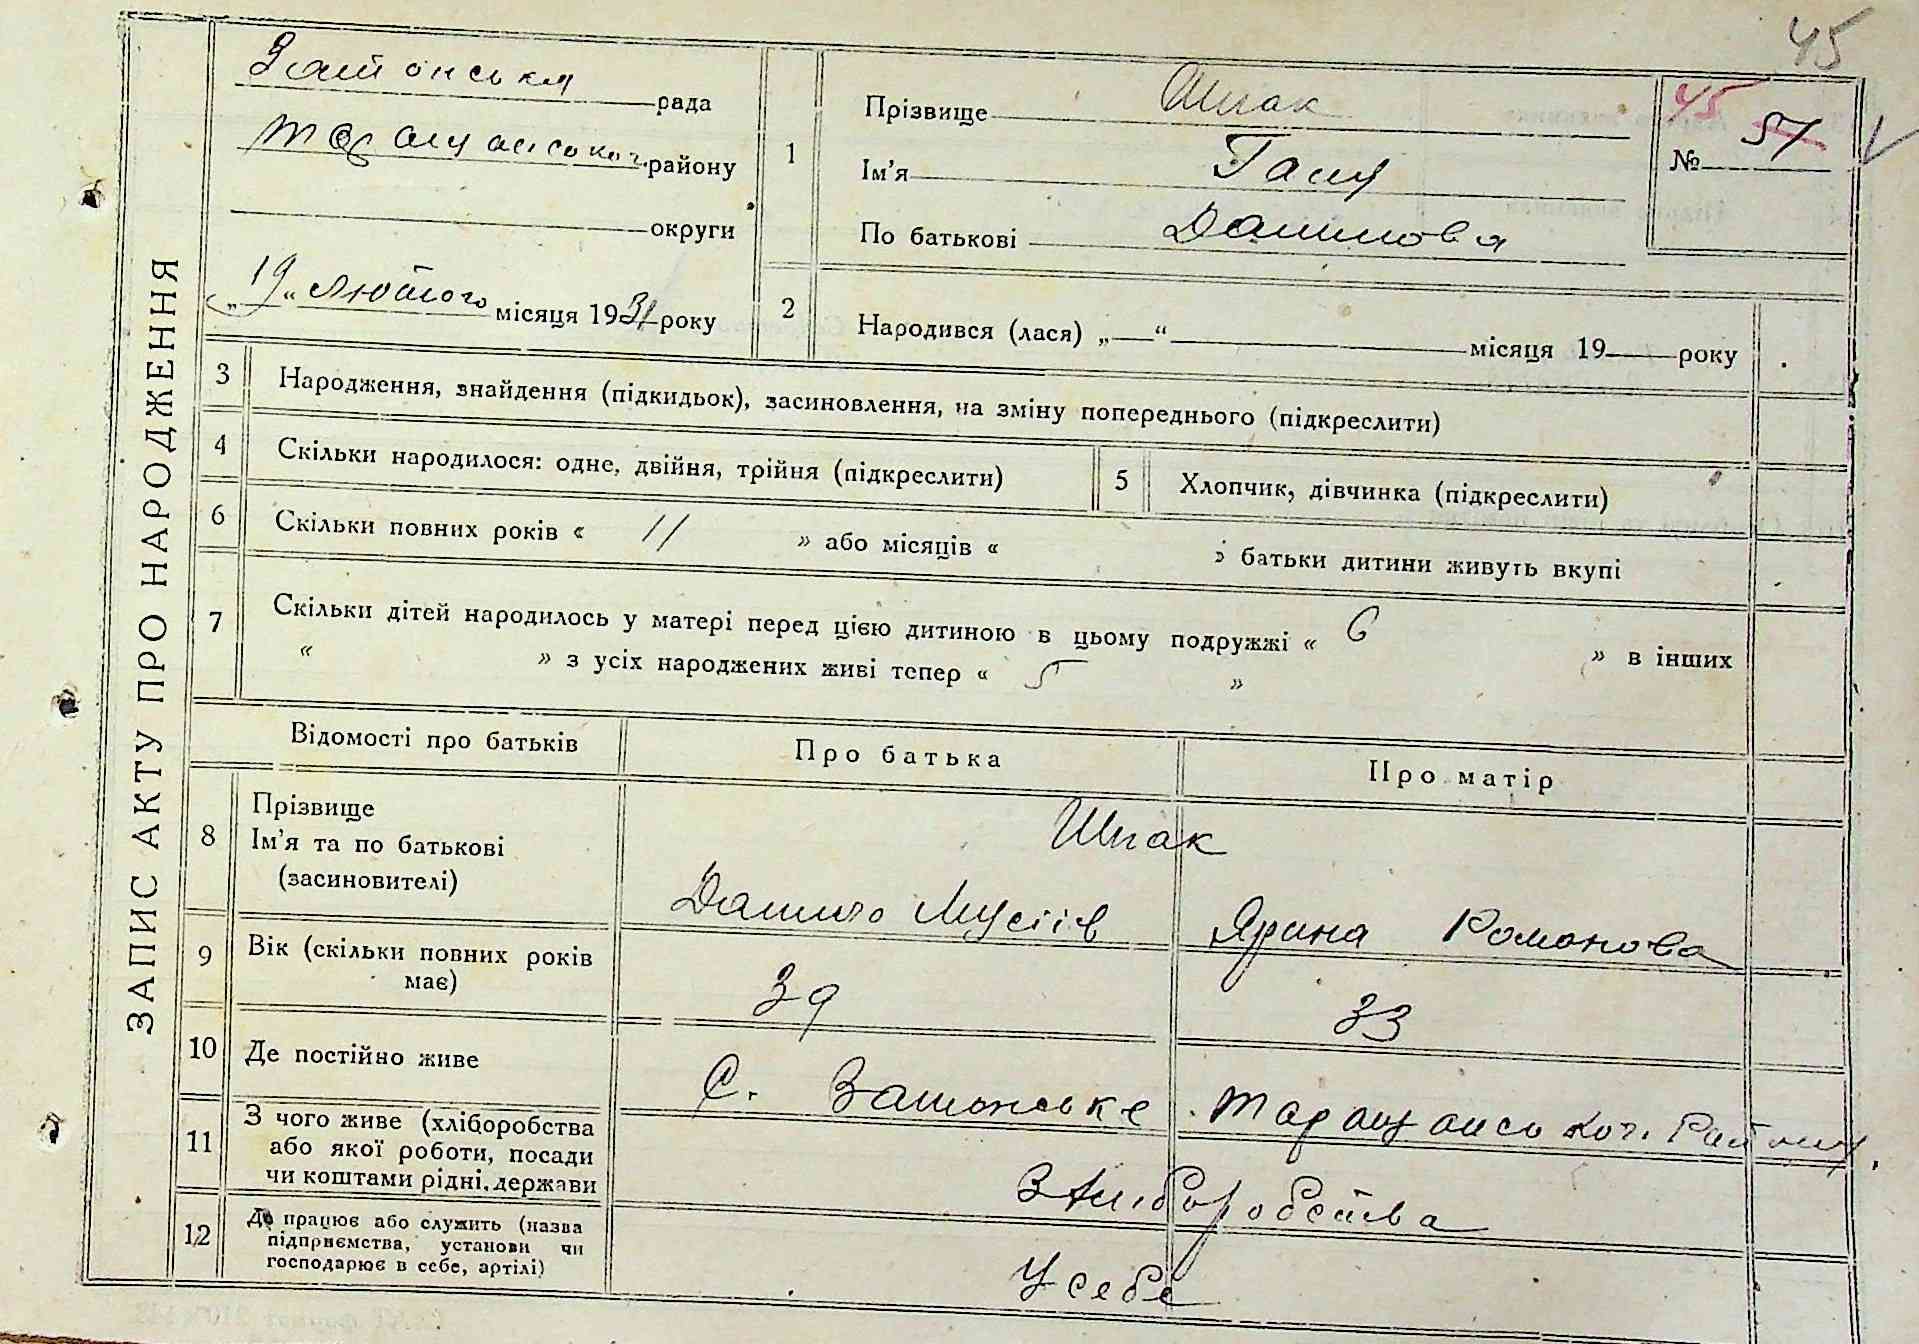 45
ЗАПИС АКТУ ПРО НАРОДЖЕННЯ
Затонська рада
Таращанськог. району
округи
„19“ Лютого місяця 1931 року
1
Прізвище Шпак
Ім'я Ганя
По батькові Данилова
45
№ 57
2
Народився (лася) „ “ місяця 19 року
3 Народження, знайдення (підкидьок), засиновлення, на зміну попереднього (підкреслити)
4 Скільки народилося: одне, двійня, трійня (підкреслити)
5 Хлопчик, дівчинка (підкреслити)
6 Скільки повних років « 11 » або місяців « » батьки дитини живуть вкупі
7 Скільки дітей народилось у матері перед цією дитиною в цьому подружжі « 6 » в інших
« » з усіх народжених живі тепер « 5 »
Відомості про батьків Про батька Про матір
8 Прізвище
Ім'я та по батькові
(засиновителі)
Шпак
Данило Мусіїв Ярина Романова
9 Вік (скільки повних років
має)
39 33
10 Де постійно живе
С. Затонське Таращанськог. Району
11 З чого живе (хліборобства
або якої роботи, посади
чи коштами рідні, держави
З хліборобства
12 Де працює або служить (назва
підприємства, установи чи
господарює в себе, артілі)
У себе